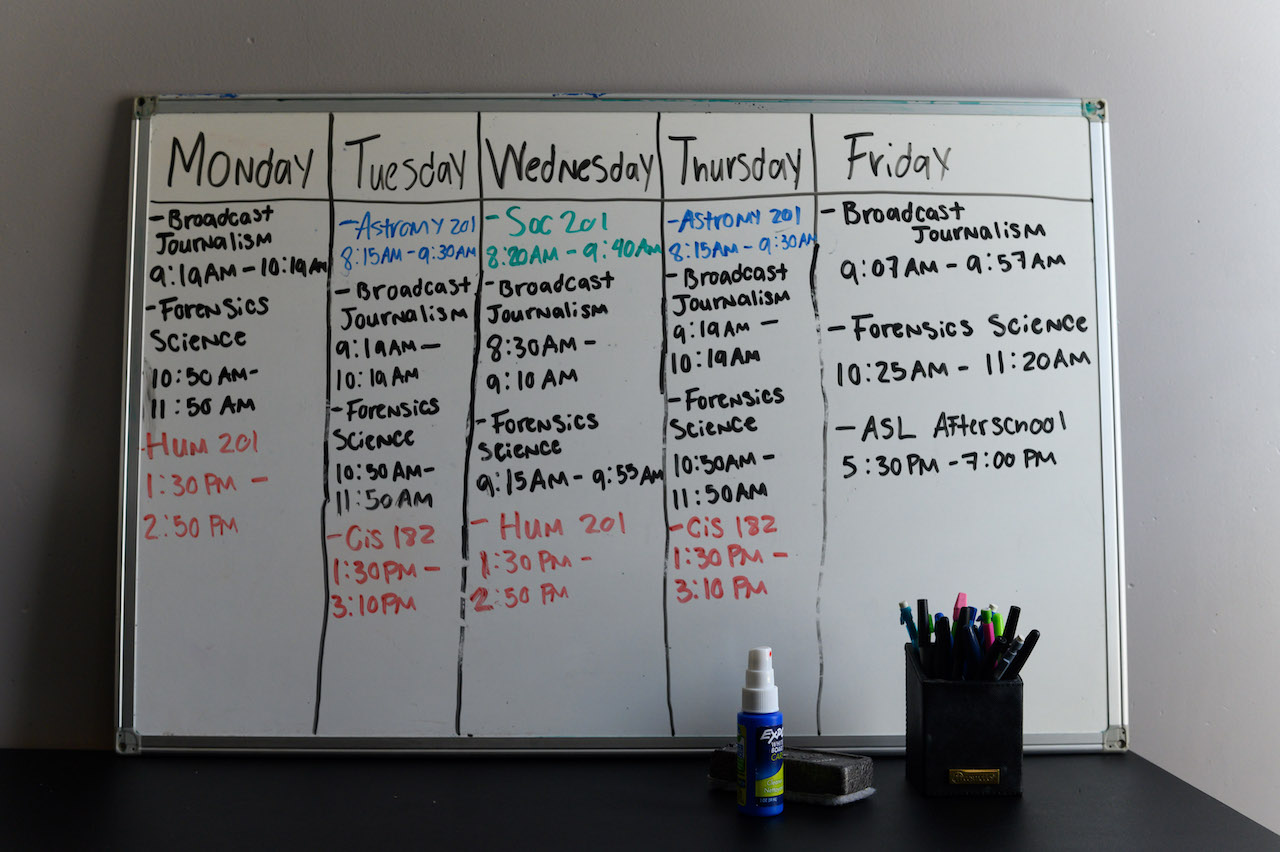 Monday
- Broadcast
Journalism
9:19AM - 10:19AM
- Forensics
Science
10:50 AM-
11:50 AM
Hum 201
1:30 PM -
2:50 PM
Tuesday
- Astromy 201
8:15AM - 9:30AM
- Broadcast
Journalism
9:19AM -
10:19AM
- Forensics
Science
10:50AM-
11:50AM
- Cis 182
1:30PM -
3:10PM
Wednesday
- Soc 201
8:20AM - 9:40AM
- Broadcast
Journalism
8:30AM -
9:10 AM
- Forensics
Science
9:15AM - 9:55AM
- Hum 201
1:30PM -
2:50 PM
Thursday
- Astromy 201
8:15AM - 9:30AM
- Broadcast
Journalism
9:19AM -
10:19AM
- Forensics
Science
10:50AM -
11:50AM
- Cis 182
1:30PM -
3:10 PM
Friday
- Broadcast
Journalism
9:07AM - 9:57AM
- Forensics Science
10:25AM - 11:20AM
- ASL Afterschool
5:30PM - 7:00 PM
EXPO